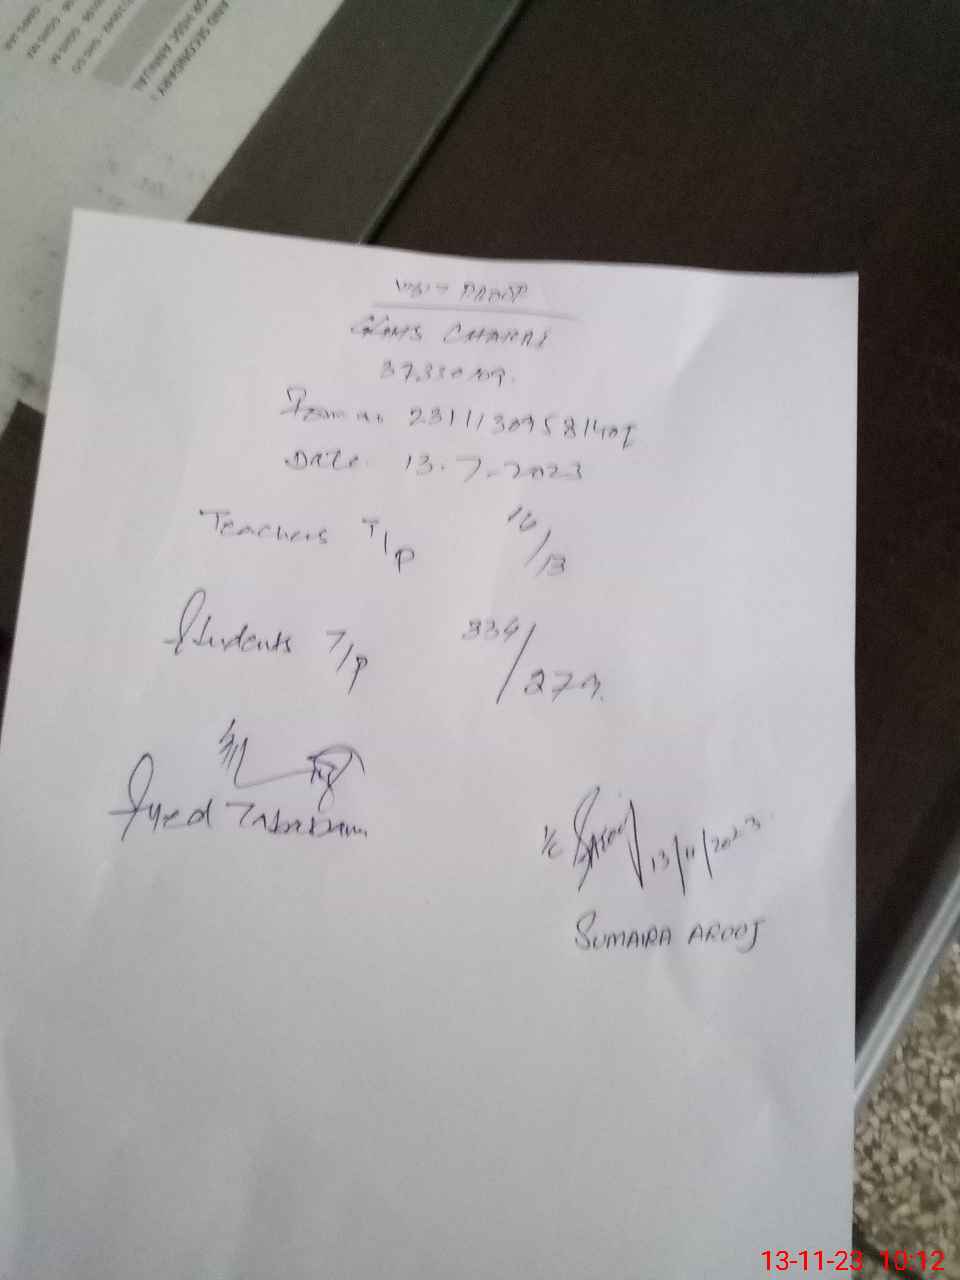 AND SECONDARY
FOR HSSC ANNUAL
VISIT PROOF
GGHS CHARAI
37330109.
Form no 23111309581401
DATE. 13.7.2023
Teachers T/P 16/13
Students T/P 334/279.
Syed Tabassam
I/C 13/11/2023.
SUMAIRA AROOJ
13-11-23 10:12